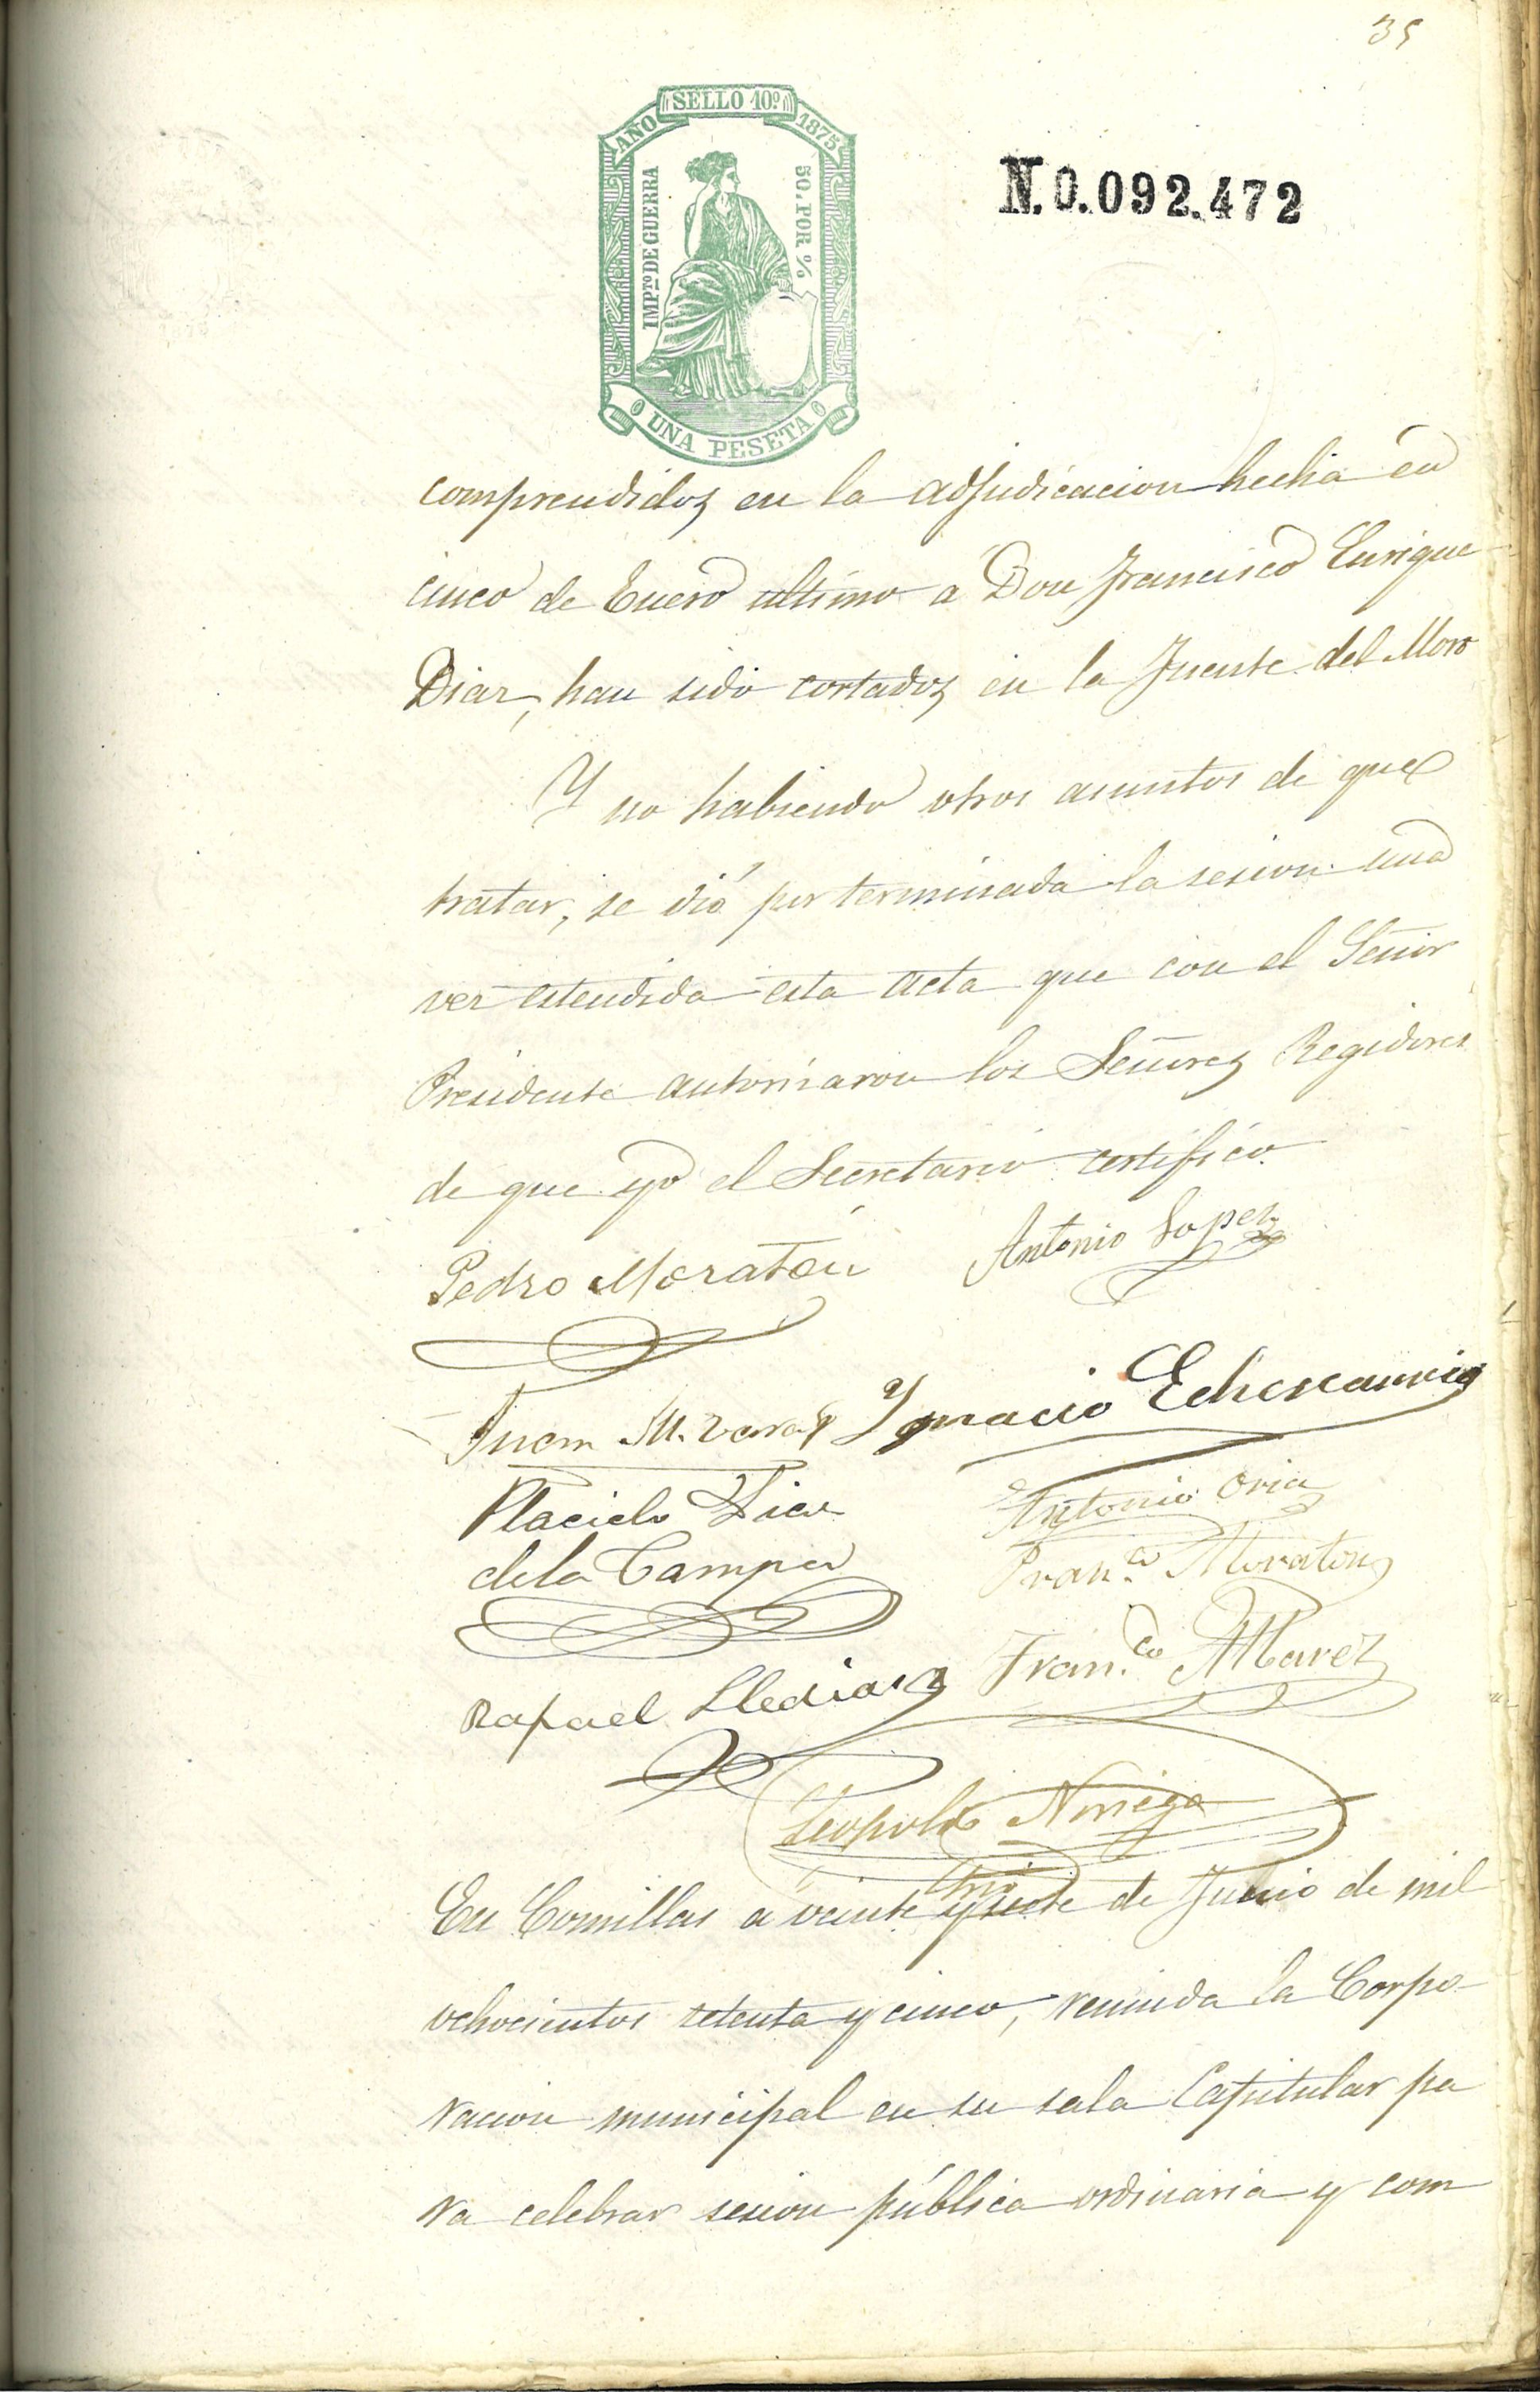 35
SELLO 10º
AÑO 1875
IMPTO DE GUERRA
50. POR %
UNA PESETA
N.0.092.472
comprendidos en la adjudicacion hecha en
cinco de Enero ultimo a Don Francisco Enrique
Diaz, han sido cortados en la Fuente del Moro
Y no habiendo otros asuntos de que
tratar, se dió por terminada la sesion una
vez estendida esta acta que con el Señor
Presidente autorisaron los Señores Regidores
de que yo el Secretario certifico.
Pedro Moratón Antonio Lopez
Juan M. Ygnacio
Placido Diaz Antonio Oria
de la Campa Fran.co Moraton
Rafael Fran.co Alvarez
Leopoldo Noriega
En Comillas a veinte y siete de Junio de mil
ochocientos setenta y cinco, reunida la Corpo-
racion municipal en su sala Capitular pa
ra celebrar sesion pública ordinaria y com